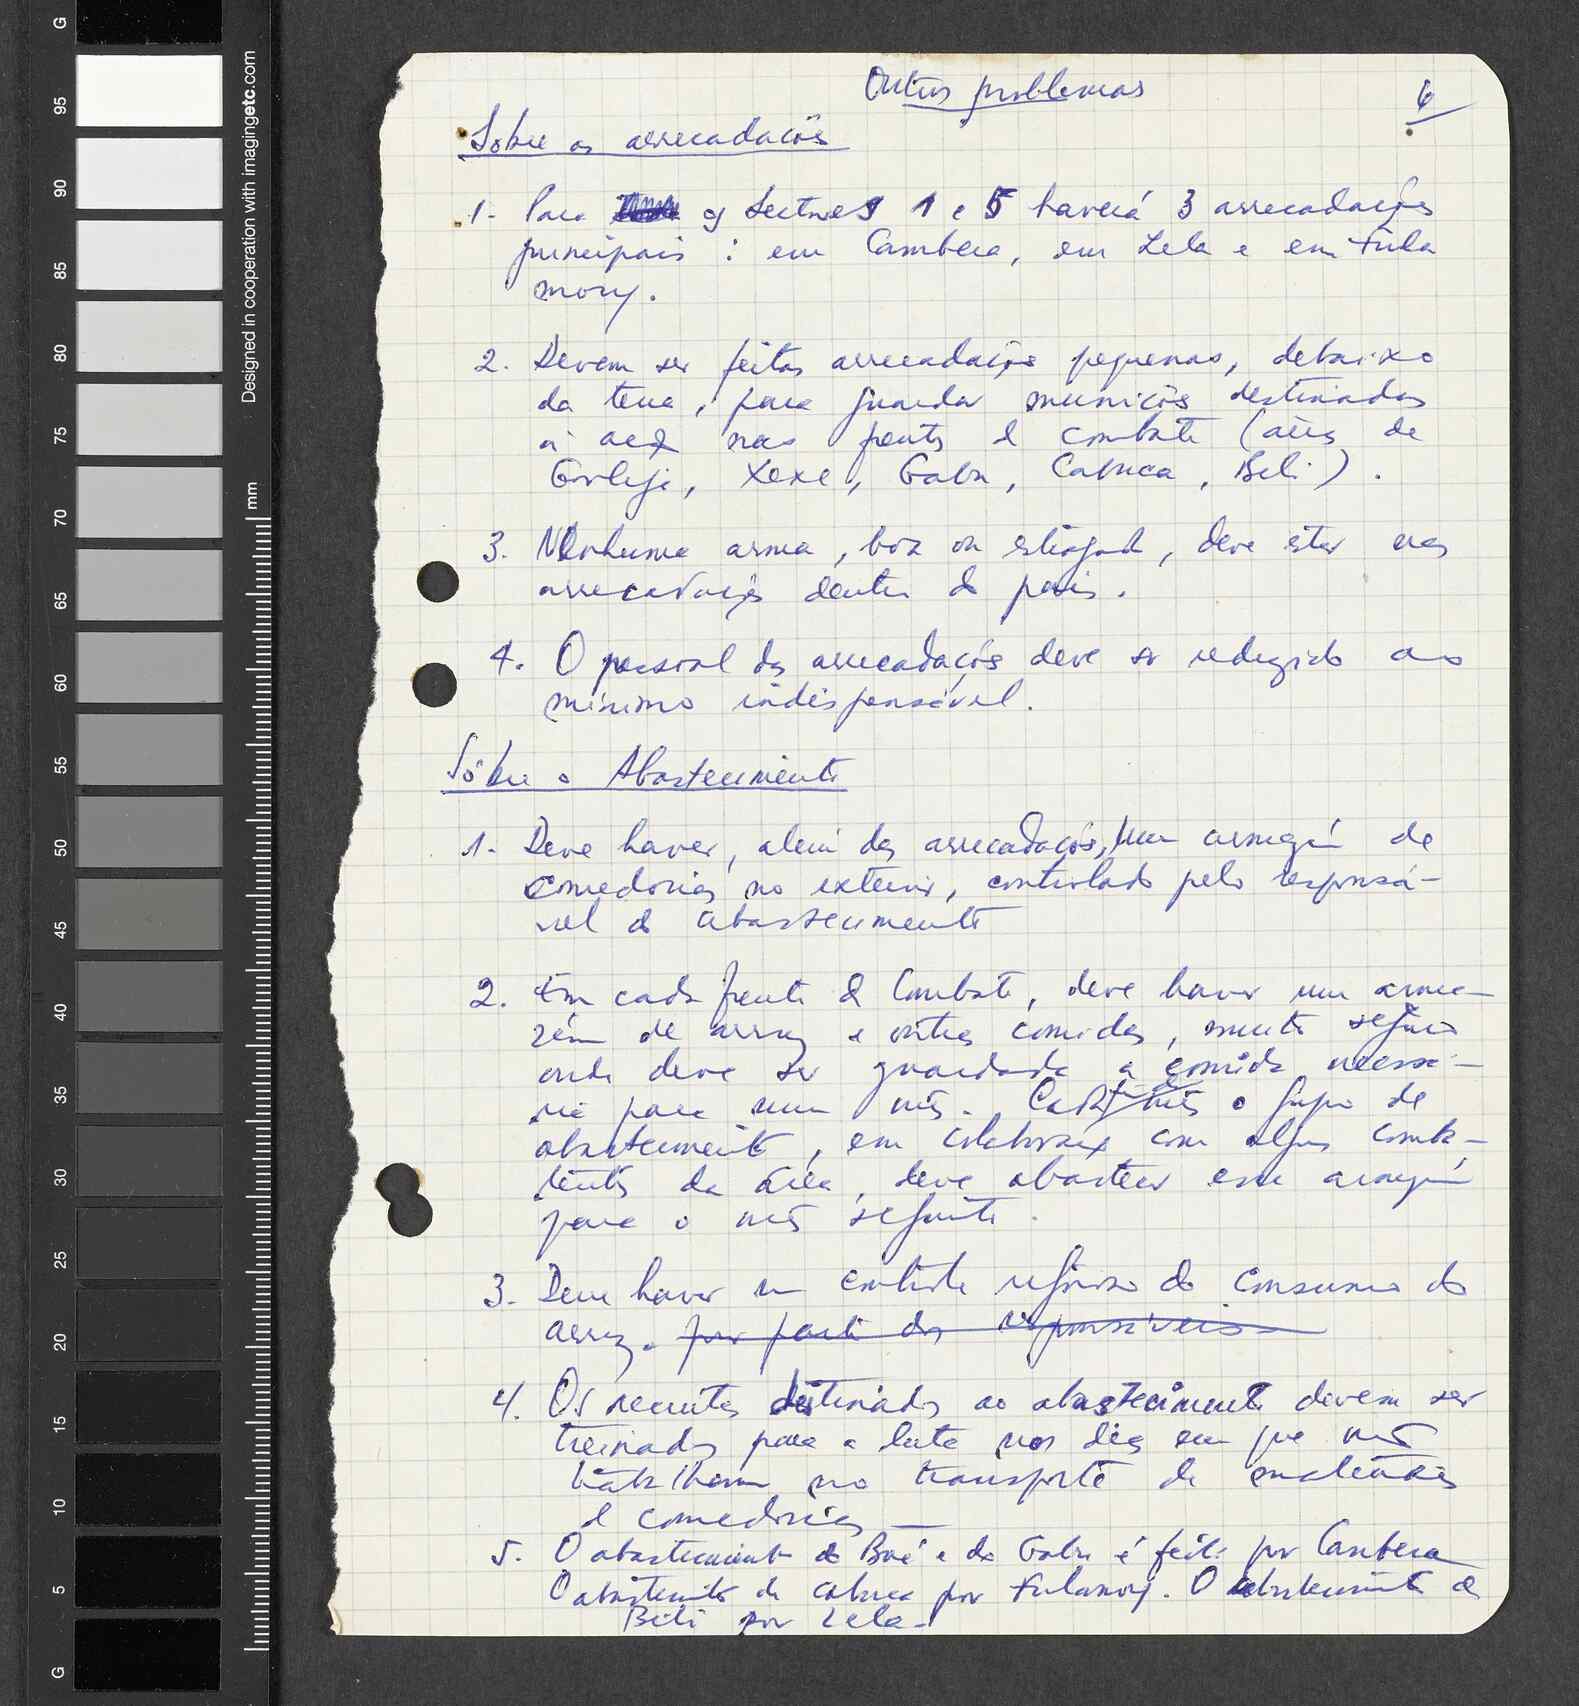 Outros problemas
6
Sobre as arrecadações
1. Para os Sectores 1 e 5 haverá 3 arrecadações
principais : em Cambera, em Lela e em Fula
mory.
2. Devem ser feitas arrecadações pequenas, debaixo
da terra, para guardar munições destinadas
à acção nas frentes de combate (áreas de
Xexe, Gabu, Cabuca, Beli).
3. Nenhuma arma, boa ou estragada, deve estar nas
arrecadações dentro do país.
4. O pessoal das arrecadações deve ser reduzido ao
mínimo indispensável.
Sôbre o Abastecimento
1. Deve haver, além das arrecadações, um armazém de
comedorias no exterior, controlado pelo responsá-
vel do abastecimento
2. Em cada frente de Combate, deve haver um arma-
zém de arroz e outras comidas, muito seguro
onde deve ser guardada a comida necessá-
ria para um mês. o grupo de
abastecimento, em colaboração com alguns comba-
tentes da área, deve abastecer esse armazém
para o mês seguinte.
3. Deve haver um controle rigoroso do consumo do
arroz. por parte dos responsáveis
4. Os recrutas destinados ao abastecimento devem ser
treinados para a luta nos dias em que não
trabalham no transporte de materiais
e comedorias
5. O abastecimento do Boé e do Gabu é feito por Cambera
O abastecimento de Cabuca por Fulamory. O abastecimento de
Beli por Lela.
Designed in cooperation with imagingetc.com
mm
G
95
90
85
80
75
70
65
60
55
50
45
40
35
30
25
20
15
10
5
G